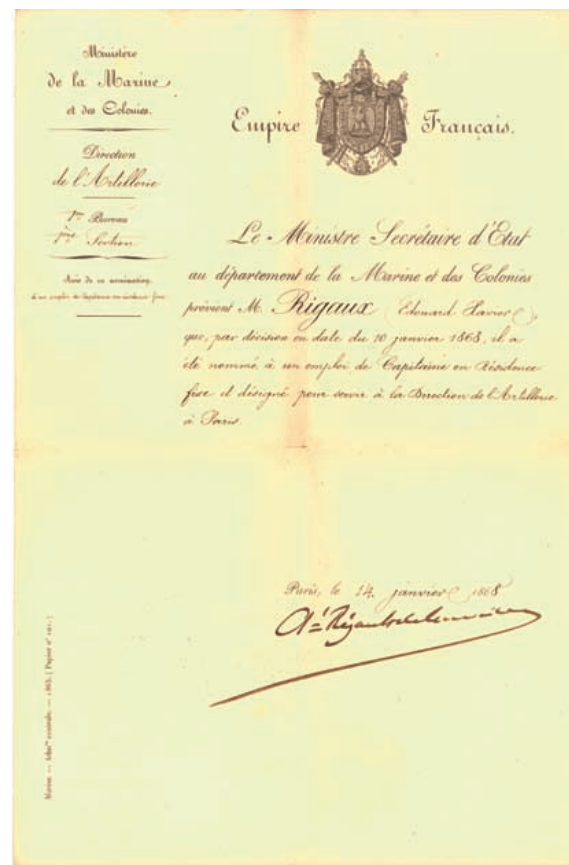 Ministère
de la Marine
et des Colonies.
Direction
de l'Artillerie
1er Bureau
1ère Section
Avis de sa nomination
à un emploi de Capitaine en résidence fixe
Empire Français.
Le Ministre Secrétaire d'Etat
au département de la Marine et des Colonies
prévient M. Rigaux (Edouard Xavier)
que, par décision en date du 10 janvier 1868, il a
été nommé à un emploi de Capitaine en Résidence
fixe et désigné pour servir à la Direction de l'Artillerie
à Paris.
Paris, le 14 janvier 1868
Marine. — Admon centrale. — 1865. [Papier n°